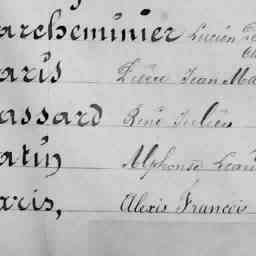 archeminier Lucien
aris Pierre Jean Ma
assard René Julien
atin Alphonse Lean
aris, Alexis Francois